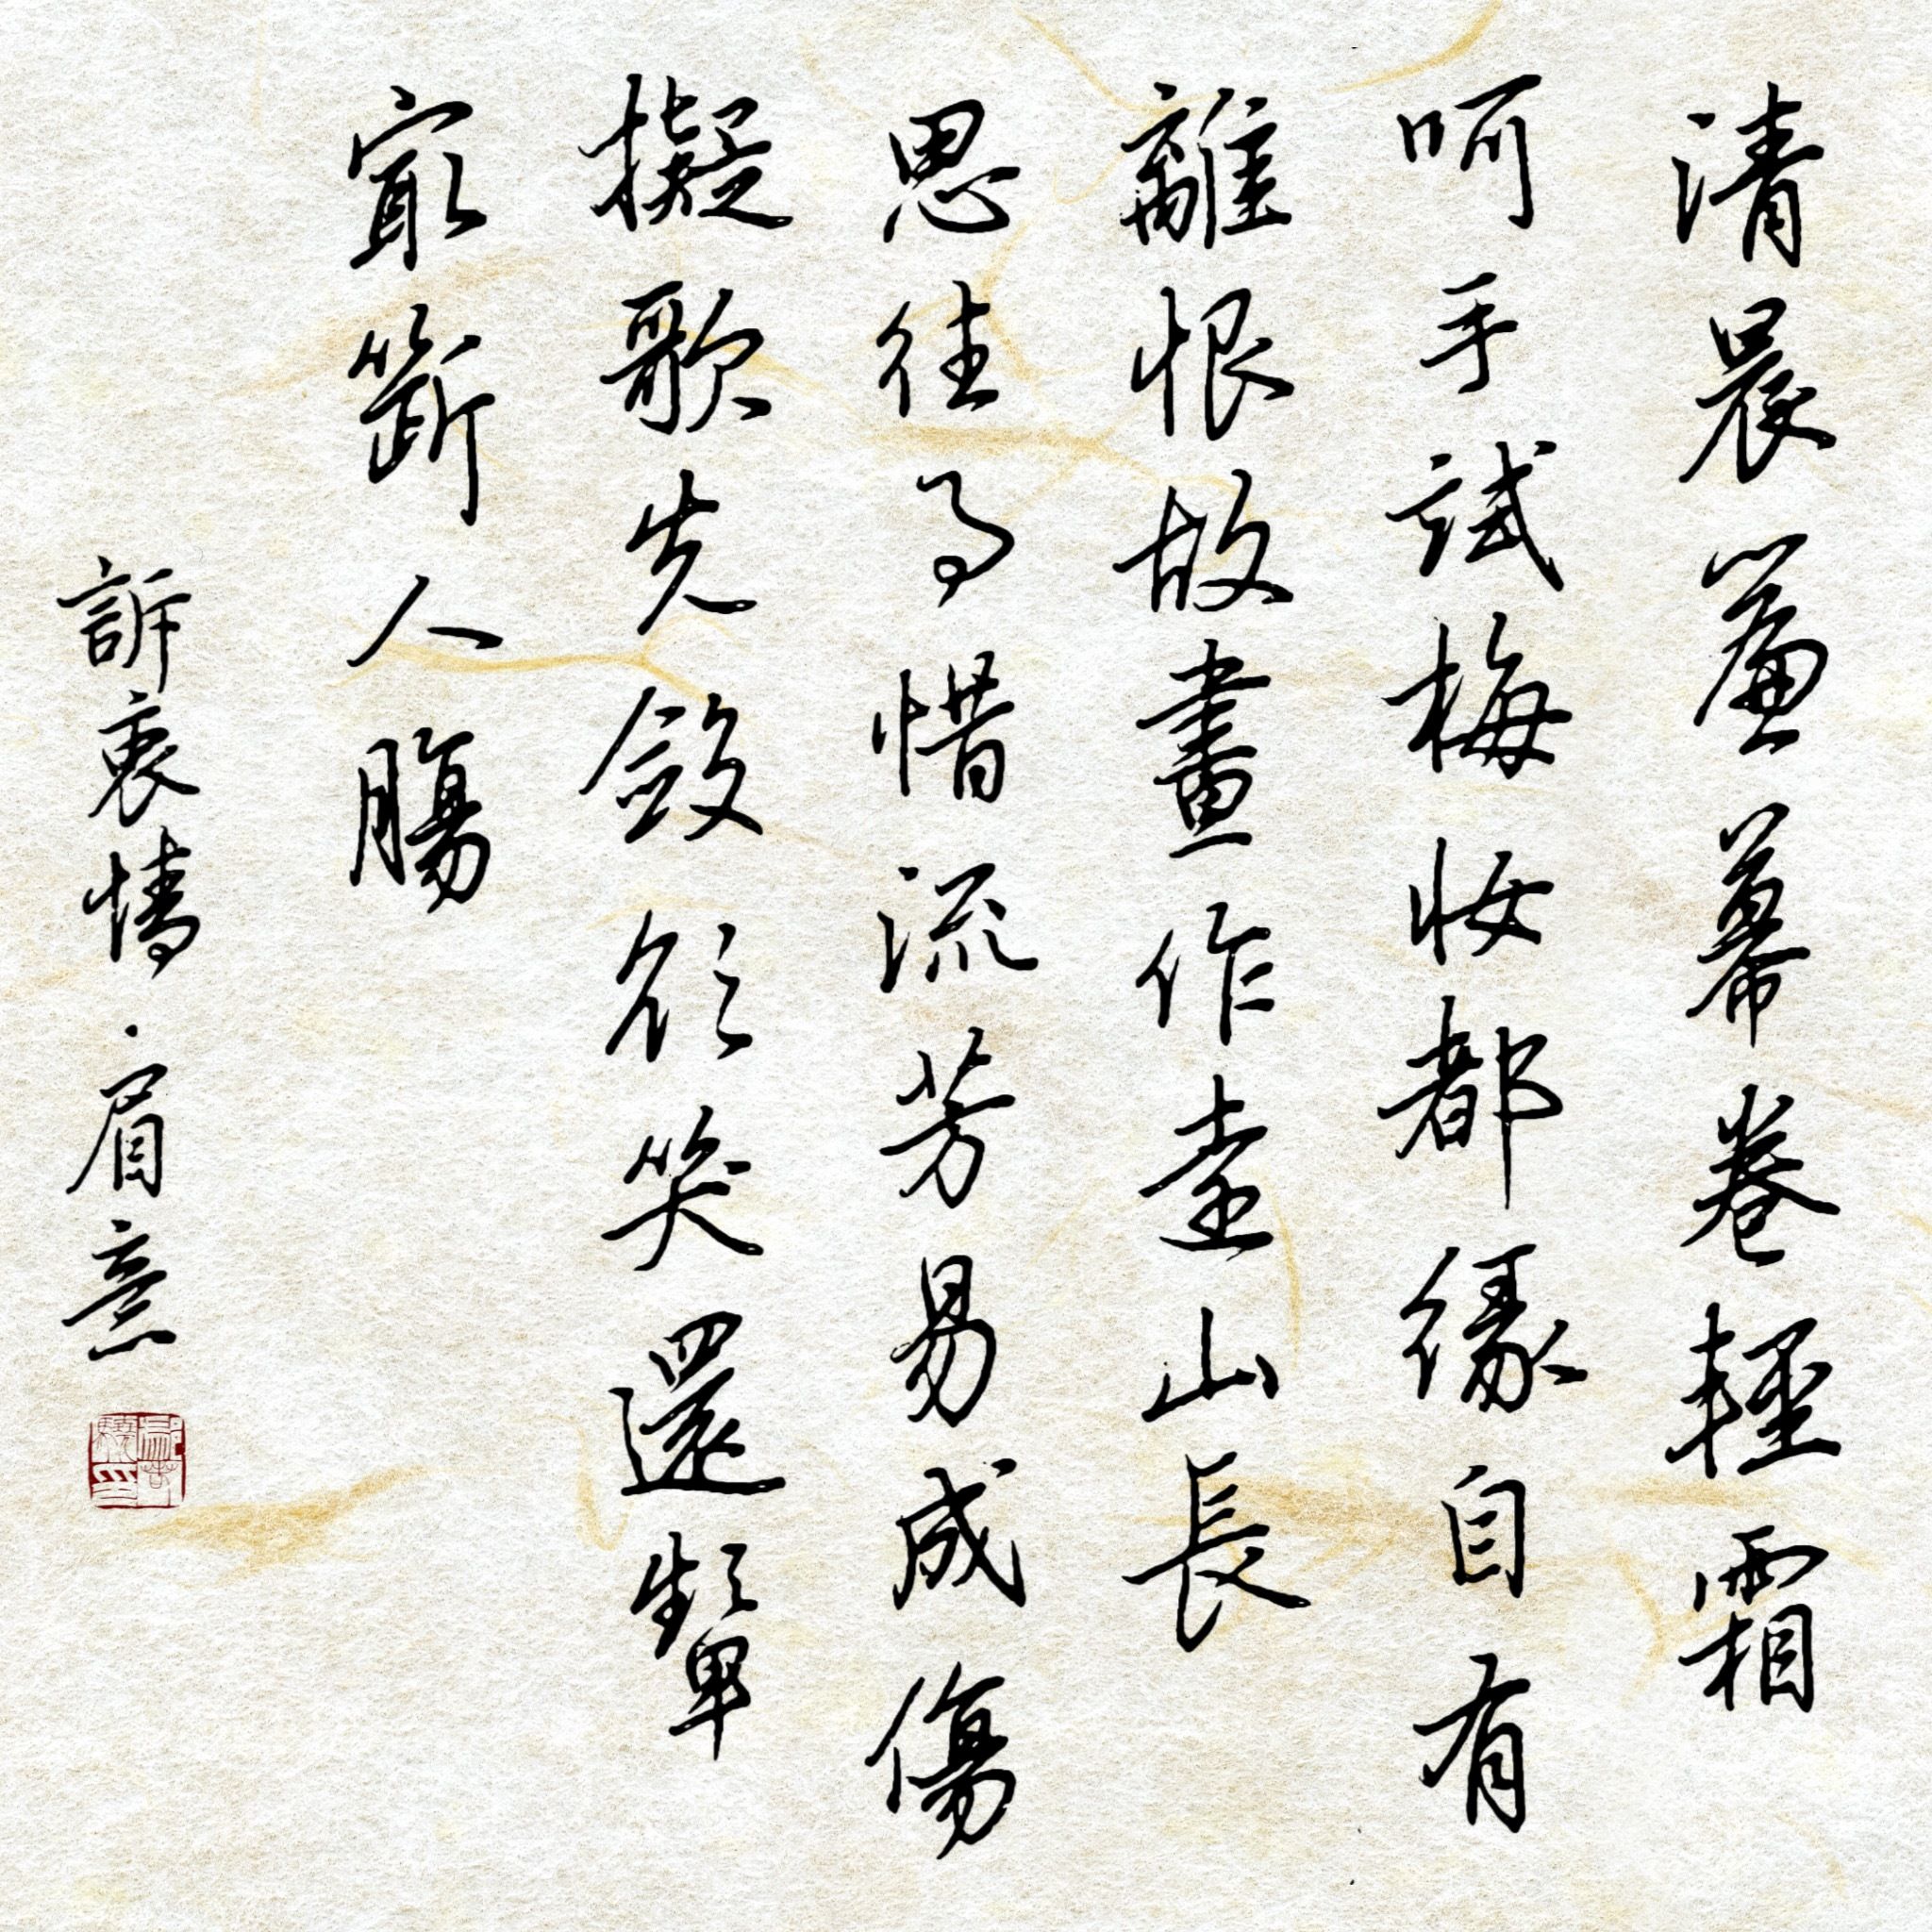 清晨簾幕卷輕霜
呵手試梅妝都緣自有
離恨故畫作遠山長
思往事惜流芳易成傷
擬歌先斂欲笑還顰
最斷人腸
訴衷情·眉意